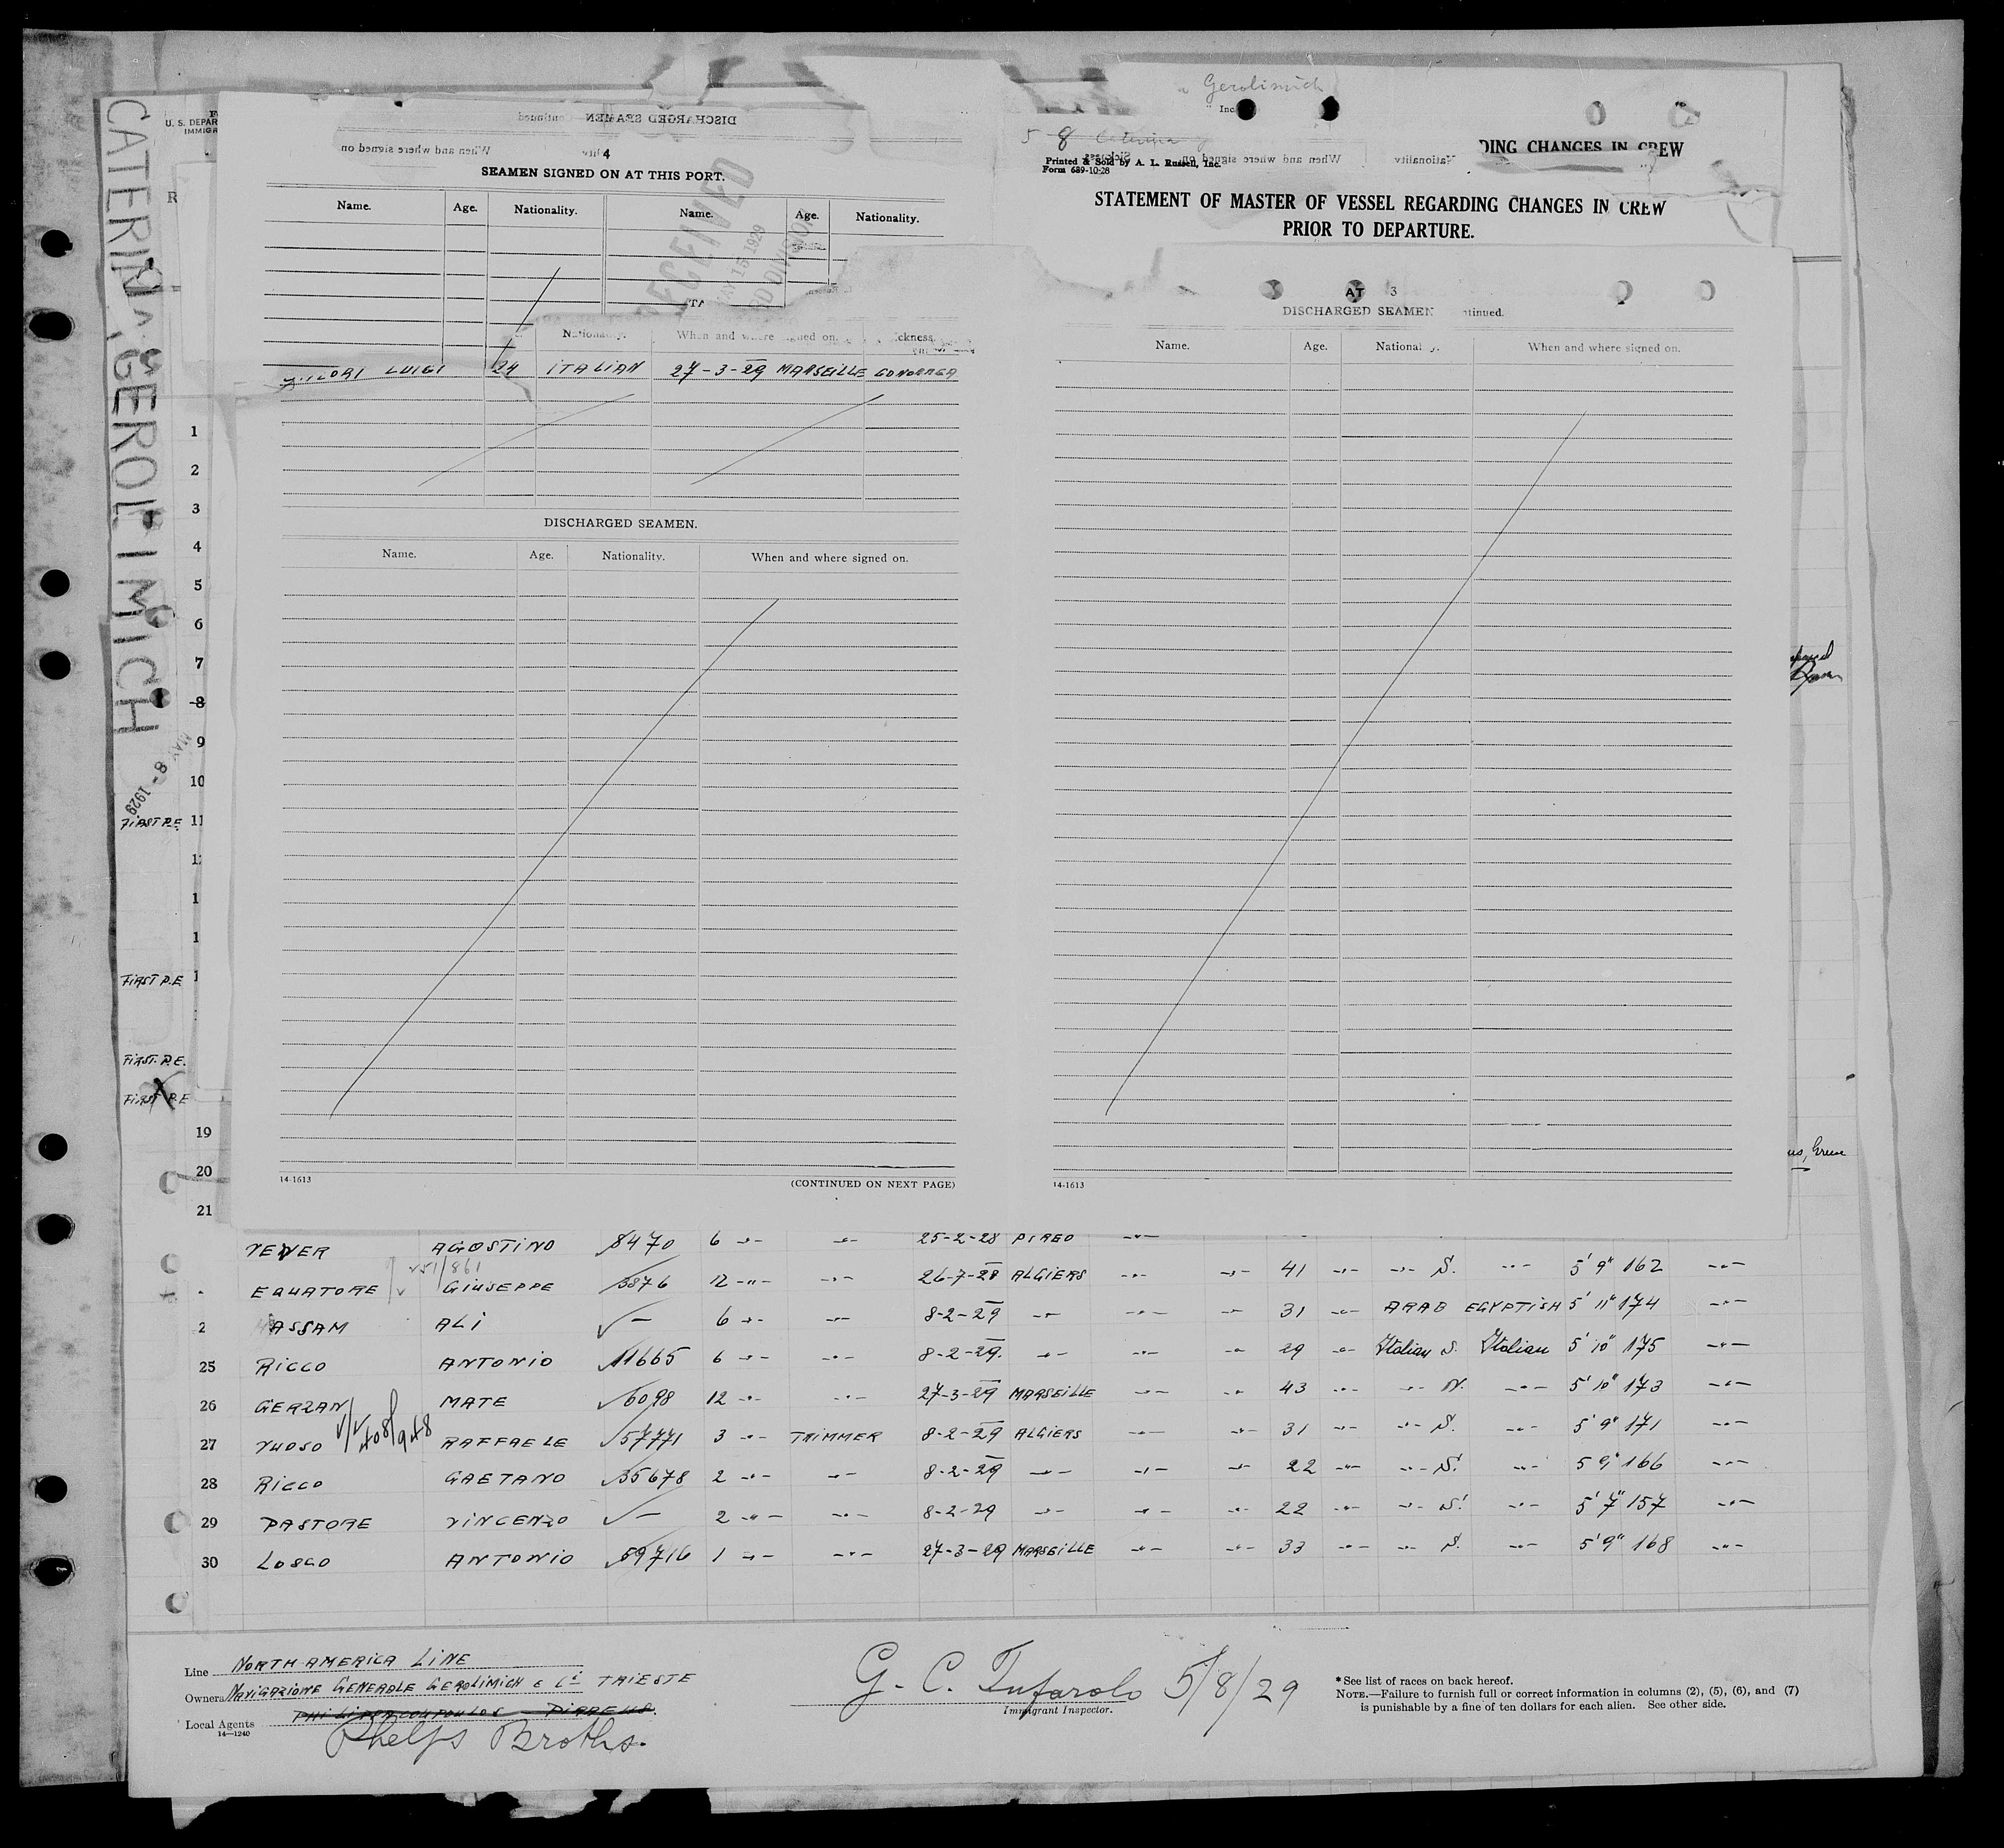 CATERINA GEROLIMICH
MAY 8 - 1929
U. S. DEPAR
IMMIGR
R
DISCHARGED SEAMEN
When and where signed on.
4
SEAMEN SIGNED ON AT THIS PORT.
Name. Age. Nationality. Name. Age. Nationality.
RECEIVED
15 1929
DIVISION
Nationality. When and where signed on. ckness.
LUIGI 24 ITALIAN 27-3-29 MARSEILLE GONORREA
DISCHARGED SEAMEN.
Name. Age. Nationality. When and where signed on.
14-1613 (CONTINUED ON NEXT PAGE)
Gerolimich
Inc
5 - 8
Printed & Sold by A. L. Russell, Inc.
Form 689-10-28
When and where signed on Nationality
DING CHANGES IN CREW
STATEMENT OF MASTER OF VESSEL REGARDING CHANGES IN CREW
PRIOR TO DEPARTURE.
AT 3
DISCHARGED SEAMEN tinued.
Name. Age. National y. When and where signed on.
14-1613
1
2
3
4
5
6
7
8
9
10
FIRST P.E. 11
1
1
1
FIRST P.E 1
FIRST P.E.
FIRST P.E
19
20
21
AGOSTINO 8470 6 -"- -"- 25-2-28 PIREO -"-
251/861
EQUATORE GIUSEPPE 3876 12 -"- -"- 26-7-28 ALGIERS -"- -"- 41 -"- -"- S. -"- 5' 9" 162 -"-
2 HASSAM ALI - 6 -"- -"- 8-2-29 -"- -"- -"- 31 -"- ARAB EGYPTISH 5' 11" 174 -"-
25 RICCO ANTONIO 11665 6 -"- -"- 8-2-29. -"- -"- -"- 29 -"- Italian S. Italian 5' 10" 175 -"-
26 GERZAN MATE 6098 12 -"- -"- 27-3-29 MARSEILLE -"- -"- 43 -"- -"- N. -"- 5' 10" 173 -"-
408/948
27 VUOSO RAFFAELE 57771 3 -"- TRIMMER 8-2-29 ALGIERS -"- -"- 31 -"- -"- S. -"- 5' 9" 171 -"-
28 RICCO GAETANO 35678 2 -"- -"- 8-2-29 -"- -"- -"- 22 -"- -"- S. -"- 5 9" 166 -"-
29 PASTORE VINCENZO - 2 -"- -"- 8-2-29 -"- -"- -"- 22 -"- -"- S. -"- 5' 7" 157 -"-
30 LOSCO ANTONIO 59716 1 -"- -"- 27-3-29 MARSEILLE -"- -"- 33 -"- -"- S. -"- 5' 9" 168 -"-
Line NORTH AMERICA LINE
Owners NAVIGAZIONE GENERALE GEROLIMICH & Ci TRIESTE
Local Agents
14—1240
Phelps Broths.
G. C. Tufarolo 5/8/29
Immigrant Inspector.
* See list of races on back hereof.
NOTE.—Failure to furnish full or correct information in columns (2), (5), (6), and (7)
is punishable by a fine of ten dollars for each alien. See other side.